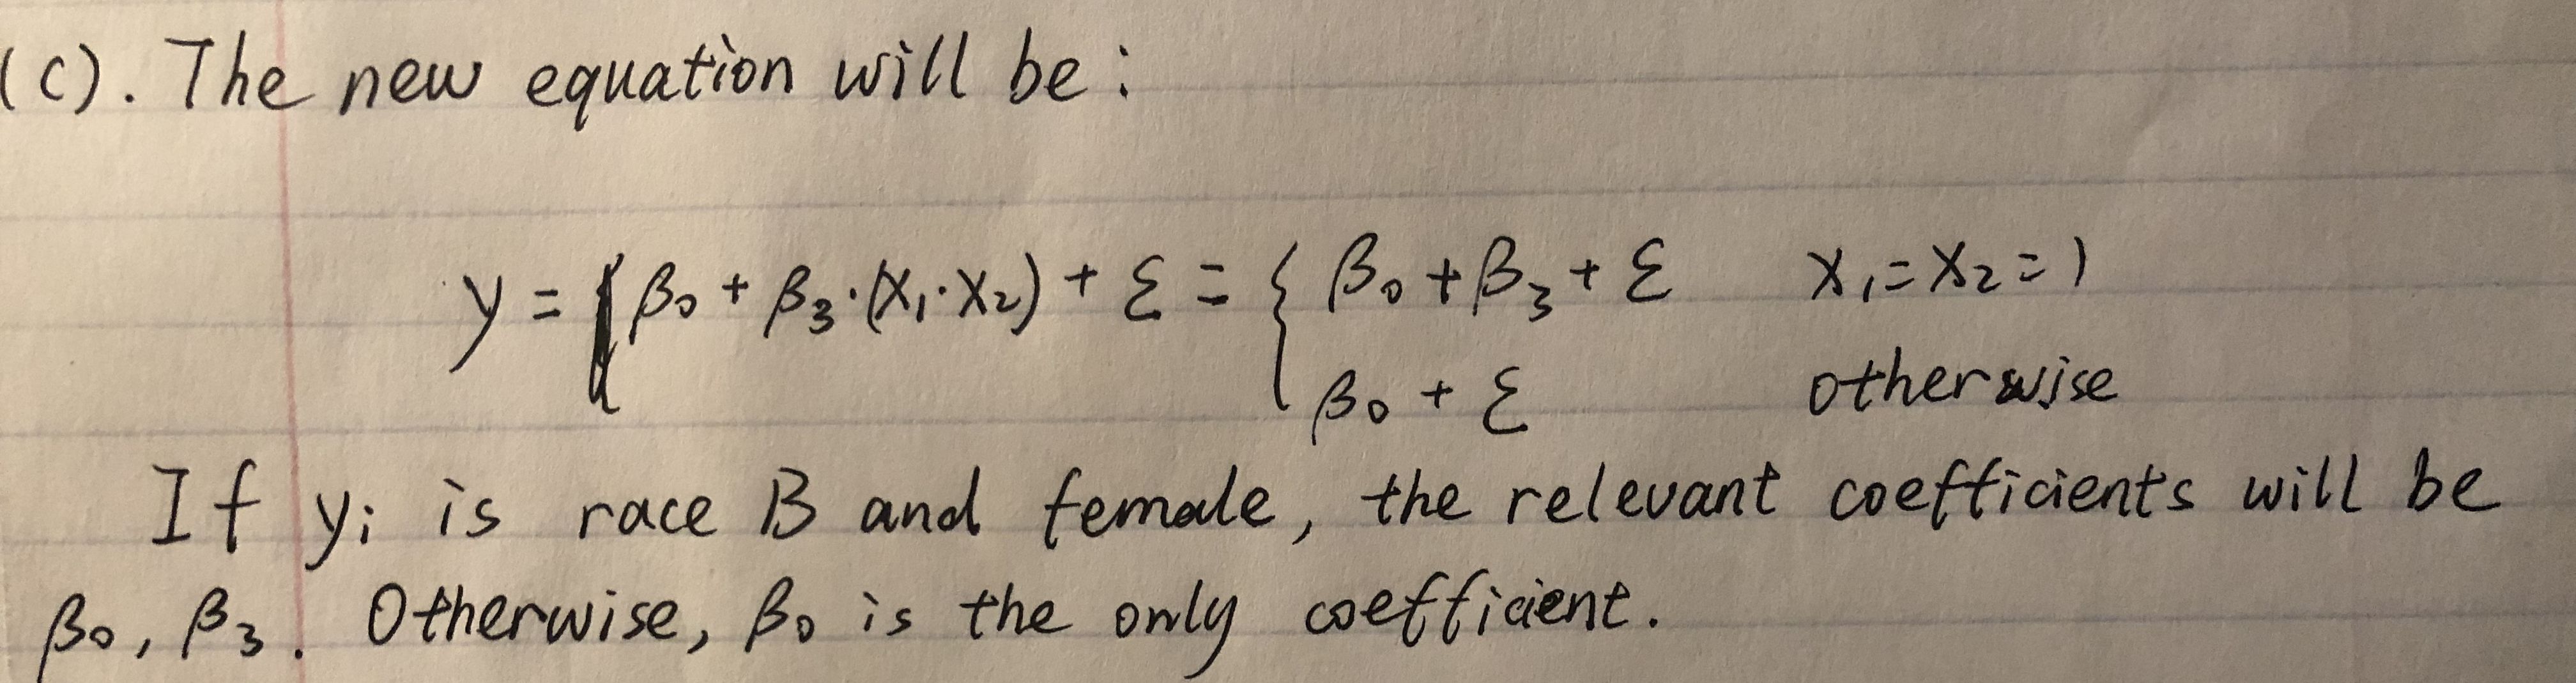 (c). The new equation will be:
y = β₀ + β₃·(x₁·x₂) + ε = { β₀ + β₃ + ε x₁ = x₂ = 1
β₀ + ε otherwise
If yᵢ is race B and female, the relevant coefficients will be
β₀, β₃. Otherwise, β₀ is the only coefficient.